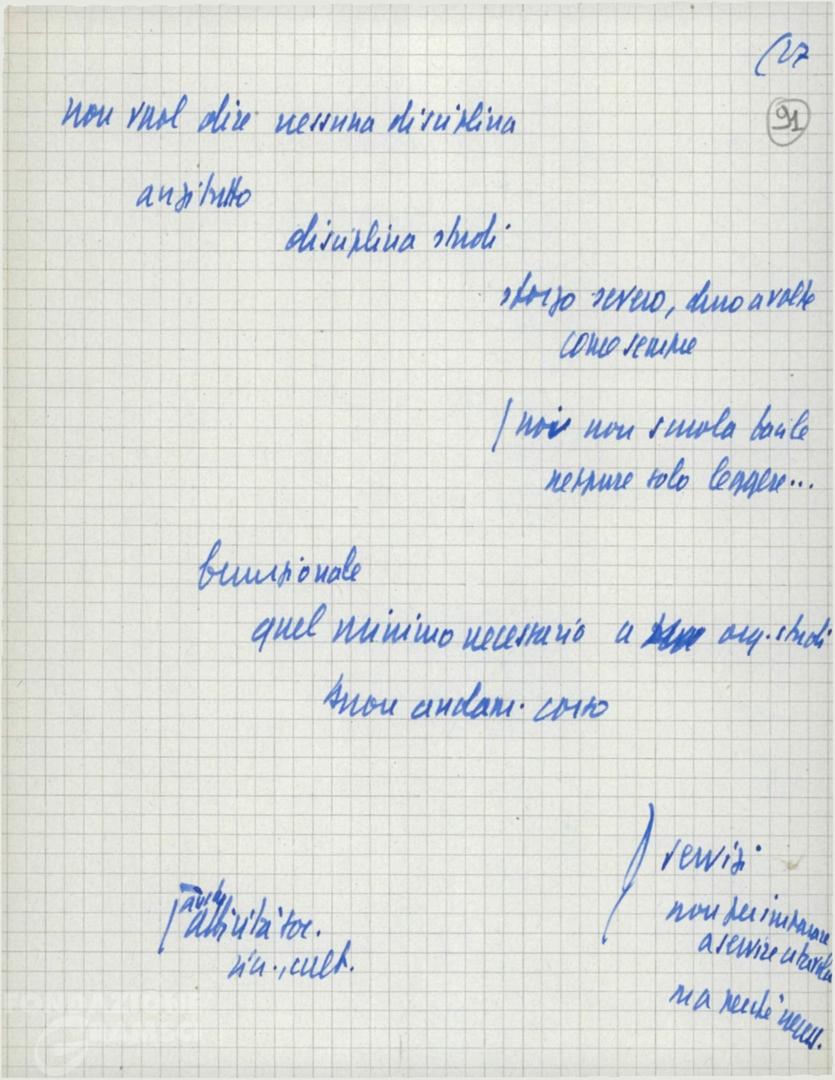 (27
91
non vuol dire nessuna disciplina
anzitutto
disciplina studi
sforzo severo, duro a volte
come sempre
noi non scuola facile
neppure solo leggere...
funzionale
quel minimo necessario a org. studi
buon andam. corso
servizi
non per imparare
a servire a tavola
ma perché necess.
anche
attività soc.
cult.